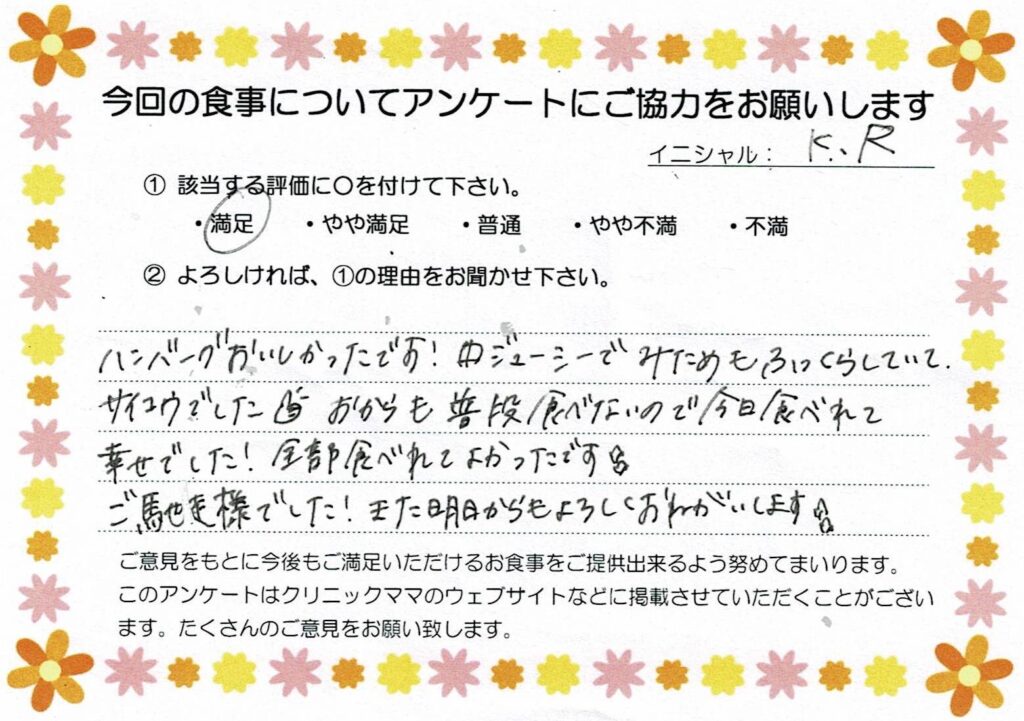 今回の食事についてアンケートにご協力をお願いします
イニシャル： K.R
① 該当する評価に〇を付けて下さい。
・満足 ・やや満足 ・普通 ・やや不満 ・不満
② よろしければ、①の理由をお聞かせ下さい。
ハンバーグおいしかったです！肉ジューシーで みためもふっくらしていて.
サイコウでした おからも 普段食べないので今日食べれて
幸せでした！全部食べれてよかったです
ご馳走様でした！また明日からもよろしくおねがいします
ご意見をもとに今後もご満足いただけるお食事をご提供出来るよう努めてまいります。
このアンケートはクリニックママのウェブサイトなどに掲載させていただくことがござい
ます。たくさんのご意見をお願い致します。